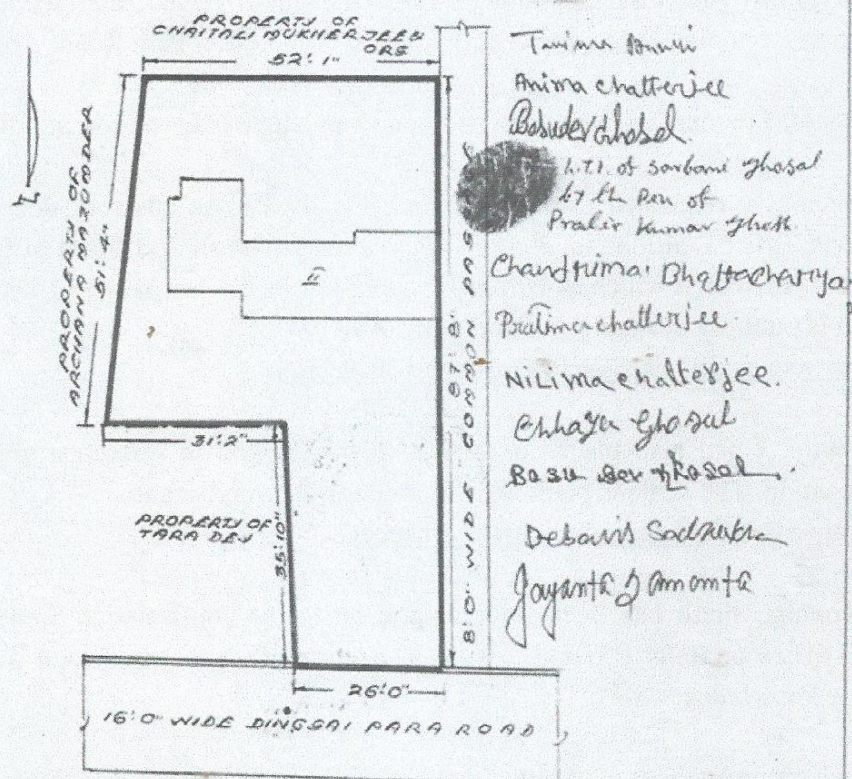 PROPERTY OF
CHAITALI MUKHERJEE &
ORS
52'-1"
PROPERTY OF
ARCHANA MAZOMDER
51'-4"
II
31'-2"
PROPERTY OF
TARA DEV
35'-10"
8'-0" WIDE COMMON PASSAGE
87'-8"
26'-0"
16'-0" WIDE DINGSAI PARA ROAD
Anima Chatterjee
Basudev Ghosal
L.T.I. of Sarbani Ghosal
by the Pen of
Prabir Kumar
Chandrima Bhattachariya
Pratima chatterjee
NiLima chatterjee.
Chhaya Ghosal
Basu Dev Ghosal
Jayanta